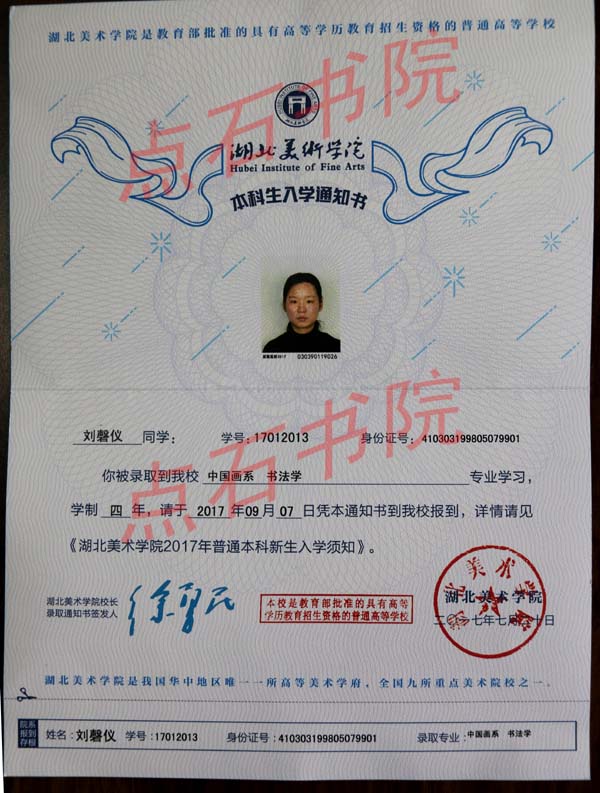 湖北美术学院是教育部批准的具有高等学历教育招生资格的普通高等学校
点石书院
湖北美術学院
Hubei Institute of Fine Arts
本科生入学通知书
030390119026
刘磬仪 同学： 学号：17012013 身份证号：410303199805079901
你被录取到我校 中国画系 书法学 专业学习，
点石书院
学制 四 年，请于 2017 年 09 月 07 日凭本通知书到我校报到，详情请见
《湖北美术学院2017年普通本科新生入学须知》。
湖北美术学院校长
录取通知书签发人
徐勇民
本校是教育部批准的具有高等
学历教育招生资格的普通高等学校
湖北美术学院
二〇一七年七月
十日
湖北美术学院是我国华中地区唯一一所高等美术学府，全国九所重点美术院校之一。
院系
报到
存根
姓名：刘磬仪 学号：17012013 身份证号：410303199805079901 录取专业：中国画系 书法学